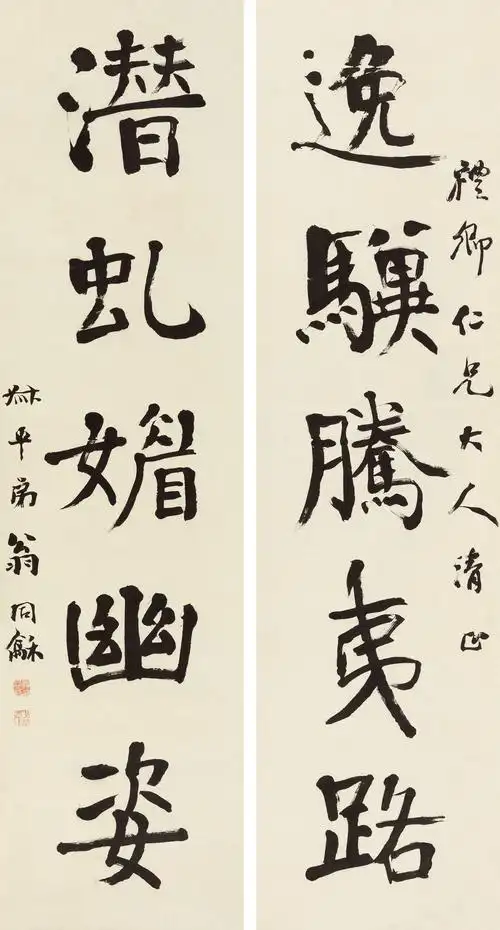 禮卿仁兄大人清正
逸驥騰夷路
潜虬媚幽姿
叔平弟翁同龢